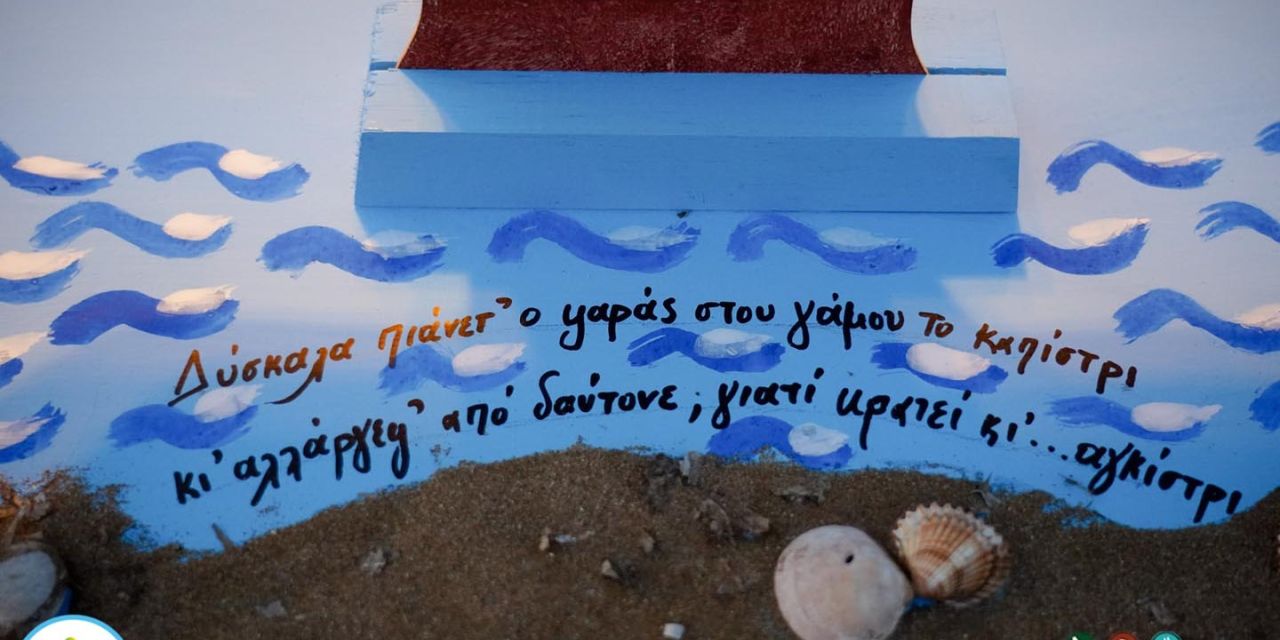 Δύσκαλα πιάνετ' ο ψαράς στου γάμου το καπίστρι
κι' αλλάργεψ' από δαύτονε; γιατί κρατεί κι'... αγκίστρι